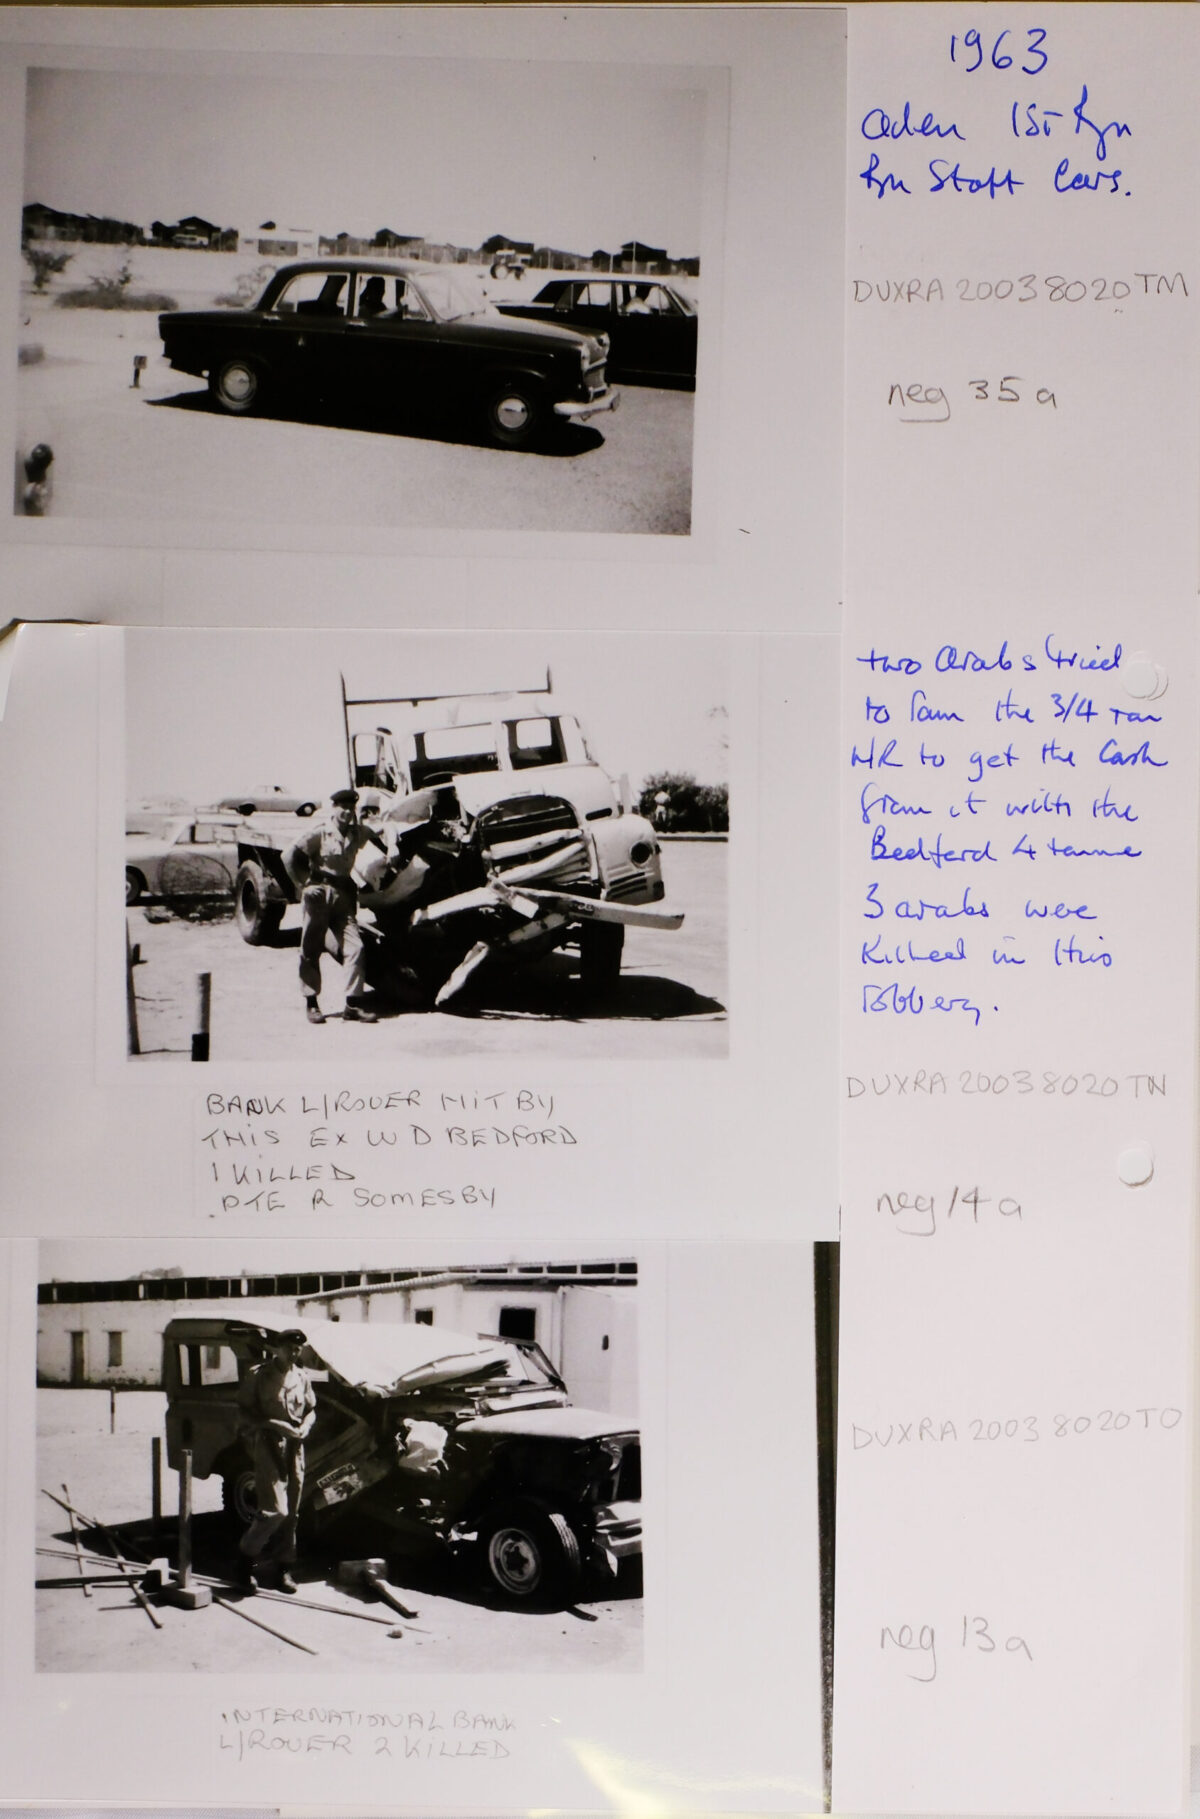 1963
Aden 1st Rgn
Rgn Staff Cars.
DUXRA 2003 8020 TM
neg 35a
two Arabs tried
to ram the 3/4 ton
L/R to get the Cash
from it with the
Bedford 4 tonne
3 arabs were
killed in this
robbery.
DUXRA 2003 8020 TN
neg 14a
BANK L/ROVER HIT BY
THIS EX W D BEDFORD
1 KILLED
PTE R SOMESBY
DUXRA 2003 8020 TO
neg 13a
INTERNATIONAL BANK
L/ROVER 2 KILLED